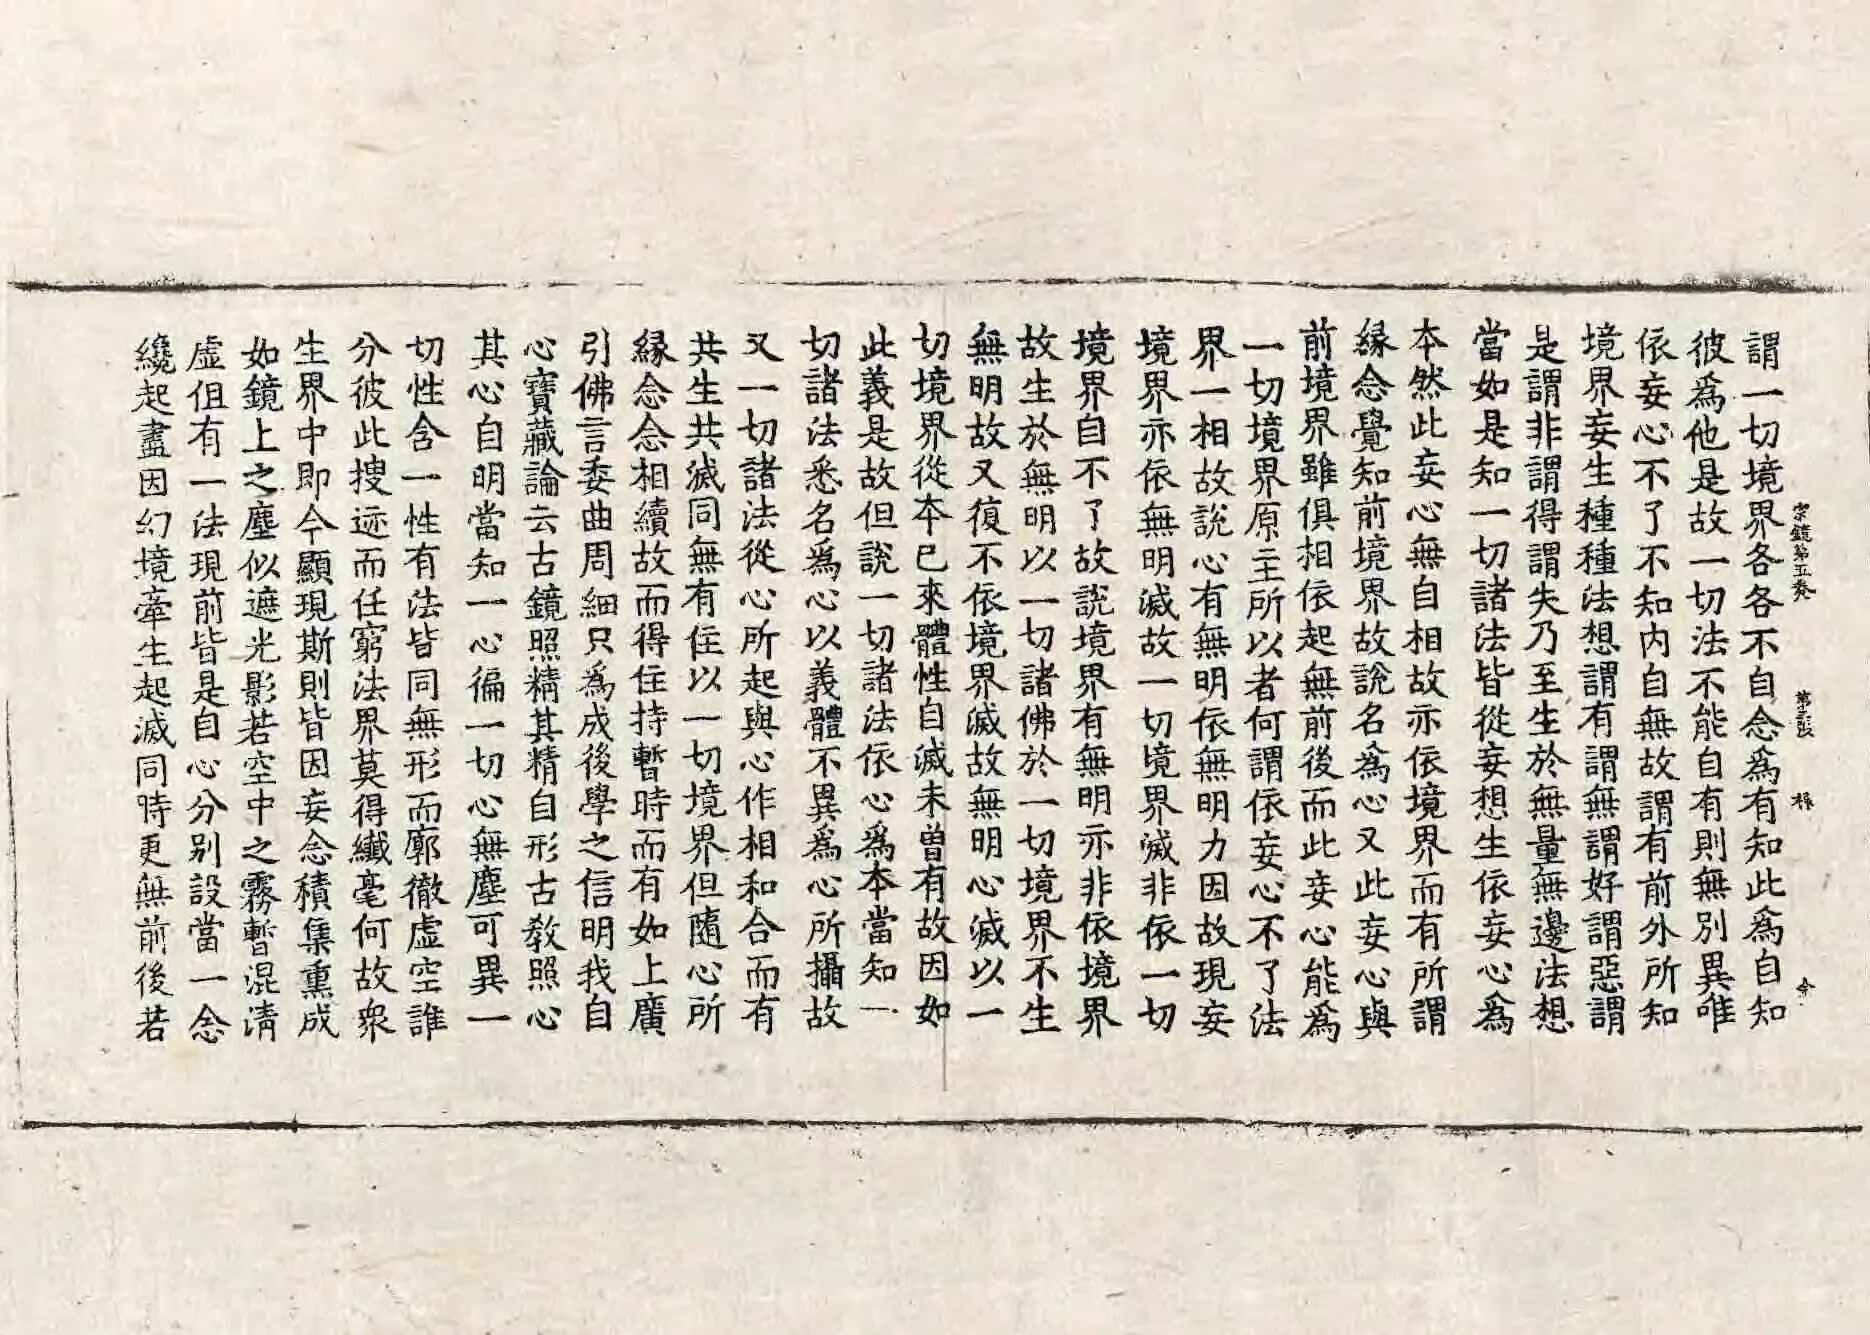 宗鏡第五卷　第三張　振　令
謂一切境界各各不自念爲有知此爲自知
彼爲他是故一切法不能自有則無別異唯
依妄心不了不知内自無故謂有前外所知
境界妄生種種法想謂有謂無謂好謂惡謂
是謂非謂得謂失乃至生於無量無邊法想
當如是知一切諸法皆從妄想生依妄心爲
本然此妄心無自相故亦依境界而有所謂
緣念覺知前境界故說名爲心又此妄心與
前境界雖俱相依起無前後而此妄心能爲
一切境界原主所以者何謂依妄心不了法
界一相故說心有無明依無明力因故現妄
境界亦依無明滅故一切境界滅非依一切
境界自不了故說境界有無明亦非依境界
故生於無明以一切諸佛於一切境界不生
無明故又復不依境界滅故無明心滅以一
切境界從本已來體性自滅未曽有故因如
此義是故但說一切諸法依心爲本當知一
切諸法悉名爲心以義體不異爲心所攝故
又一切諸法從心所起與心作相和合而有
共生共滅同無有住以一切境界但隨心所
緣念念相續故而得住持暫時而有如上廣
引佛言委曲周細只爲成後學之信明我自
心寶藏論云古鏡照精其精自形古教照心
其心自明當知一心徧一切心無塵可異一
切性含一性有法皆同無形而廓徹虛空誰
分彼此搜迹而任窮法界莫得纖毫何故衆
生界中即今顯現斯則皆因妄念積集熏成
如鏡上之塵似遮光影若空中之霧暫混淸
虛但有一法現前皆是自心分別設當一念
纔起盡因幻境牽生起滅同時更無前後若